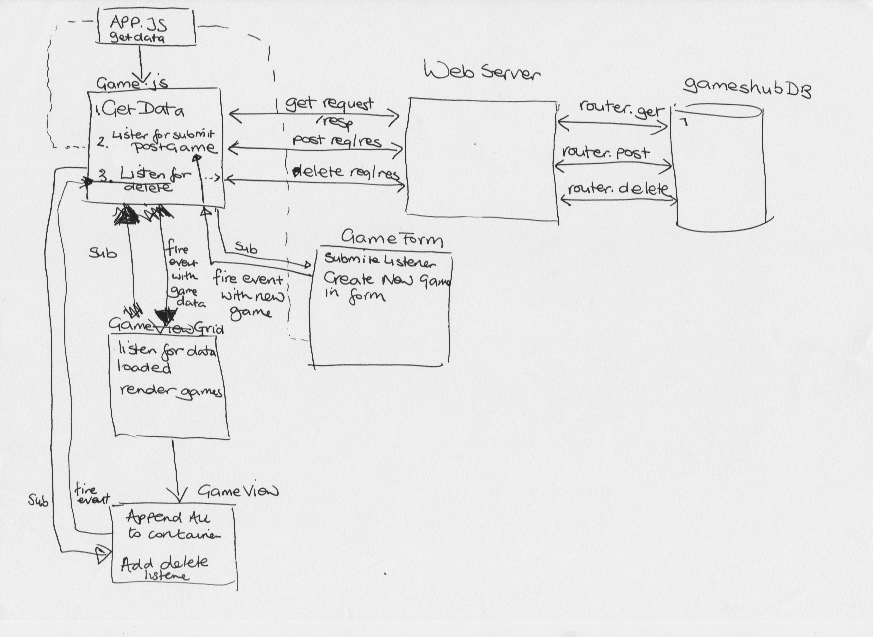 APP.JS
getdata
Game.js
1. Get Data
2. Lister for submit
postGame
3. Listen for
delete
get request
/resp
post req/res
delete req/res
Web Server
gameshubDB
router.get
router.post
router.delete
1
Sub
fire
event
with
game
data
Sub
fire event
with new
game
GameForm
Submite Listener
Create New Game
in form
GameViewGrid
listen for data
loaded
render games
Sub
fire
event
GameView
Append All
to container
Add delete
listene